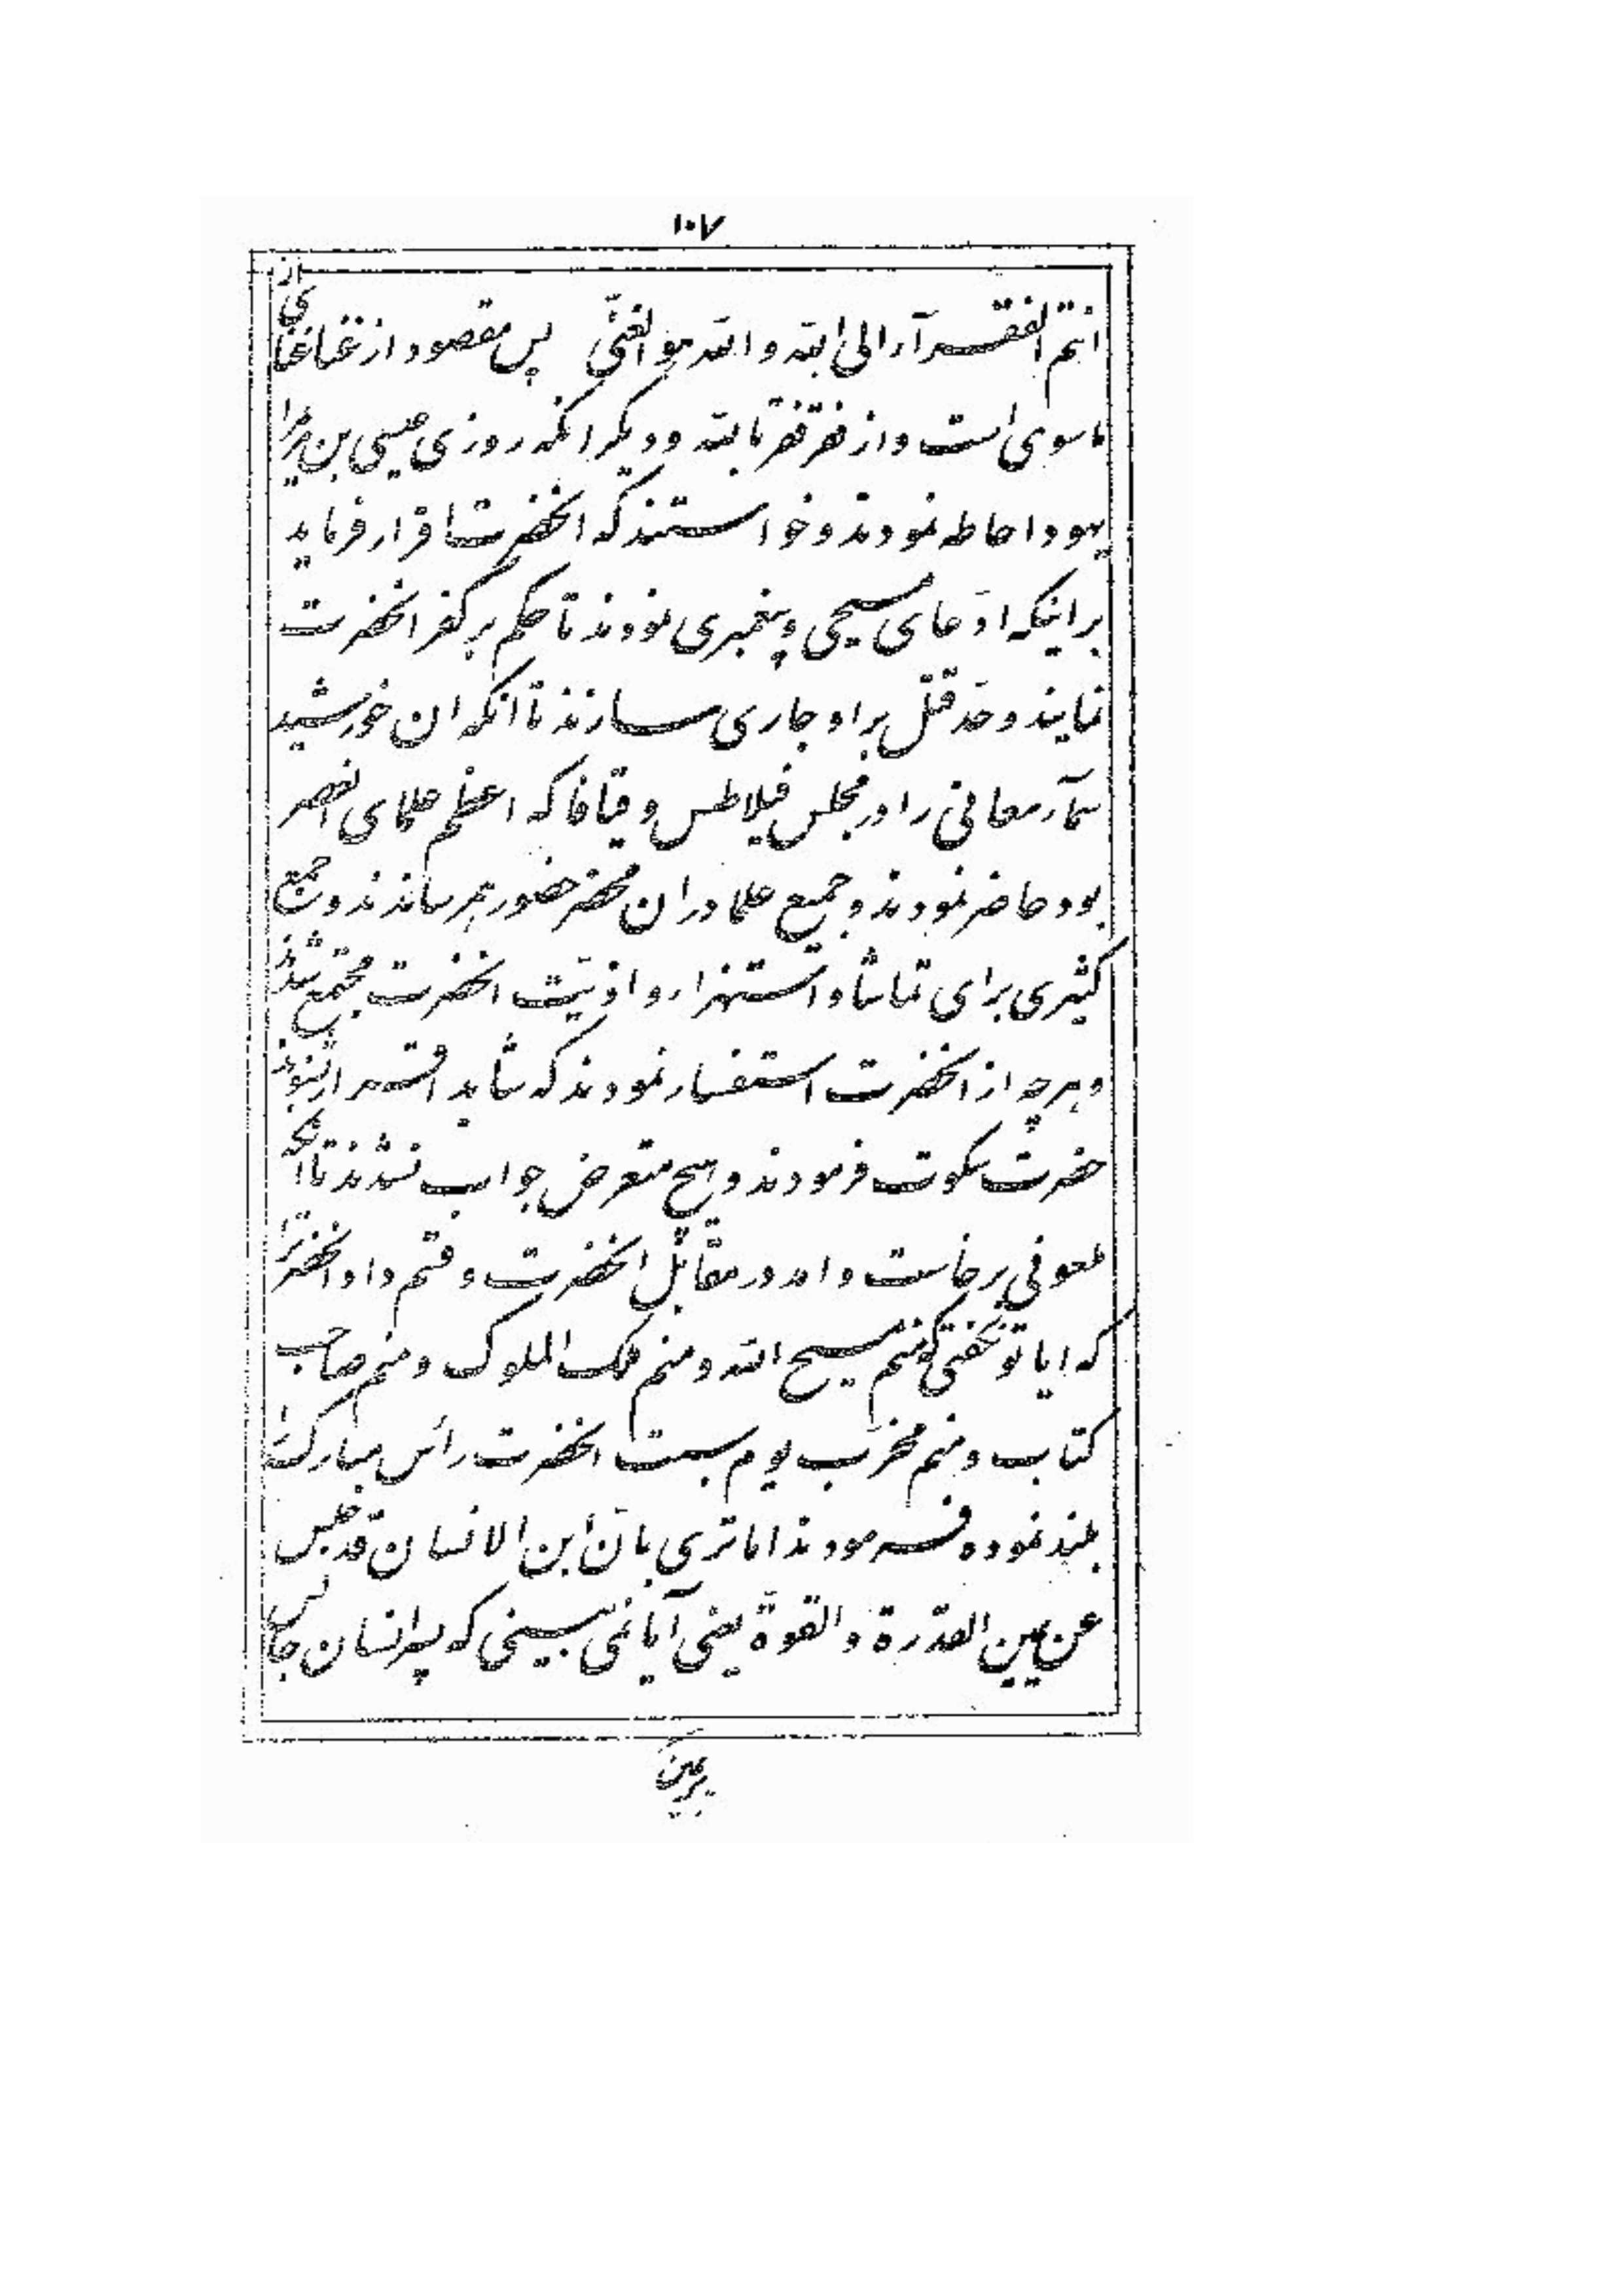 ١٠٧
انتم الفقرآء الی الله و الله هو الغنیّ پس مقصود از غنا غنای از
ماسوی است و از فقر فقر بالله و دیگر انکه روزی عیسی بن مریم را
یهود احاطه نمودند و خواستند که انحضرت اقرار فرماید
بر اینکه ادّعای مسیحی و پیغمبری نمودند تا حکم بر کفر انحضرت
نمایند و حدّ قتل بر او جاری سازند تا انکه ان خورشید
سمآء معانی را در مجلس فیلاطس و قیافا که اعظم علمای انعصر
بود حاضر نمودند و جمیع علما در ان محضر حضور بهم رساندند و جمع
کثیری برای تماشا و استهزاء و اذیّت انحضرت مجتمع شدند
و هرچه از انحضرت استفسار نمودند که شاید اقرار بشنوند
حضرت سکوت فرمودند و هیچ متعرض جواب نشدند تا انکه
ملعونی برخاست و امد در مقابل انحضرت و قسم داد انحضرت را
که ایا تو نگفتی که منم مسیح الله و منم ملک الملوک و منم صاحب
کتاب و منم مخرّب یوم سبت انحضرت رأس مبارک را
بلند نموده فرمودند اما تری بانّ ابن الانسان قد جلس
عن یمین القدرة و القوة یعنی آیا نمی بینی که پسر انسان جالس
بر یمین